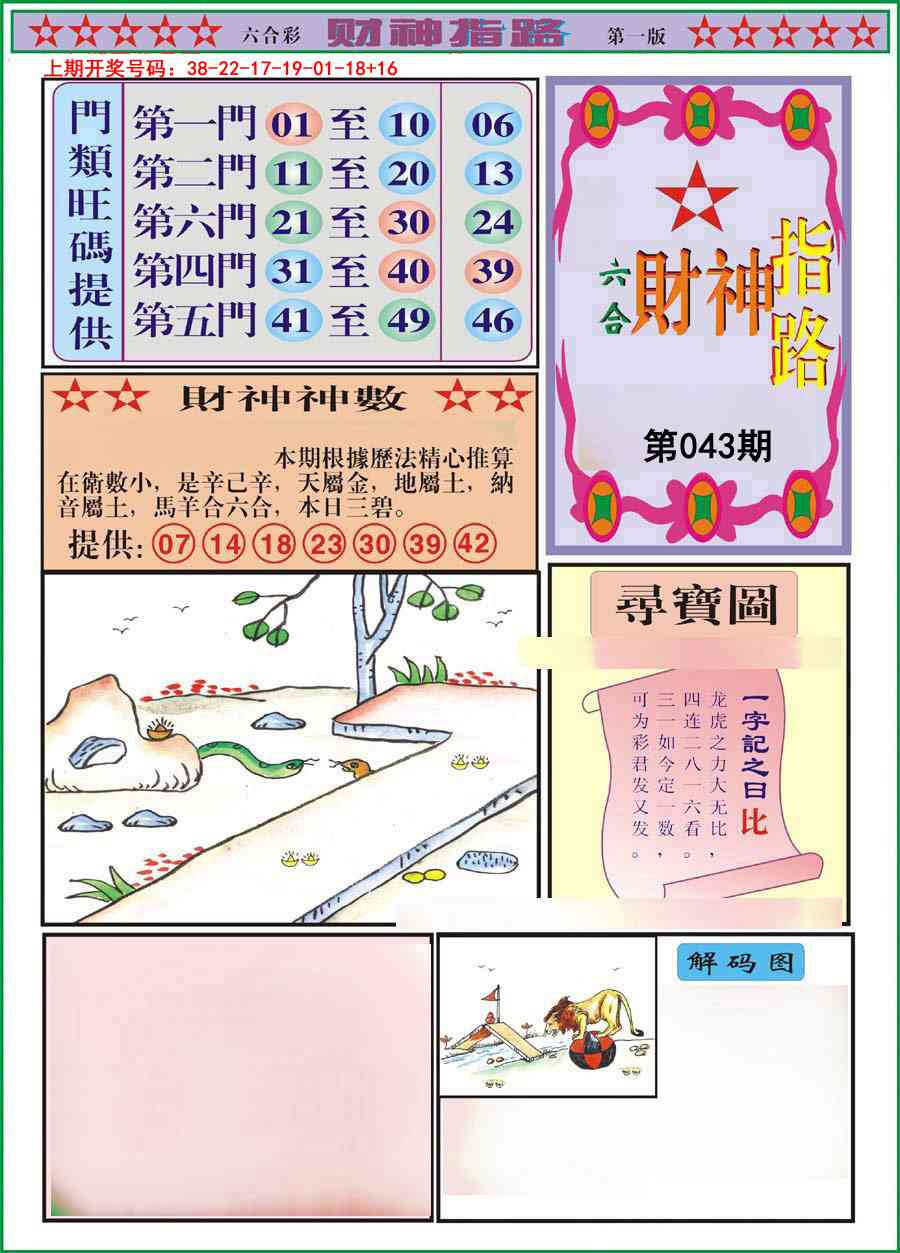 六合彩 财神指路 第一版
上期开奖号码：38-22-17-19-01-18+16
門類旺碼提供
第一門 01 至 10 06
第二門 11 至 20 13
第六門 21 至 30 24
第四門 31 至 40 39
第五門 41 至 49 46
六合
財神
指路
第043期
財神神數
本期根據歷法精心推算
在衛數小，是辛己辛，天屬金，地屬土，納
音屬土，馬羊合六合，本日三碧。
提供: 07 14 18 23 30 39 42
尋寶圖
一字記之曰 比
龙虎之力大无比，
四连二八一六看。
三一如今定一数，
可为彩君发又发。
解码图